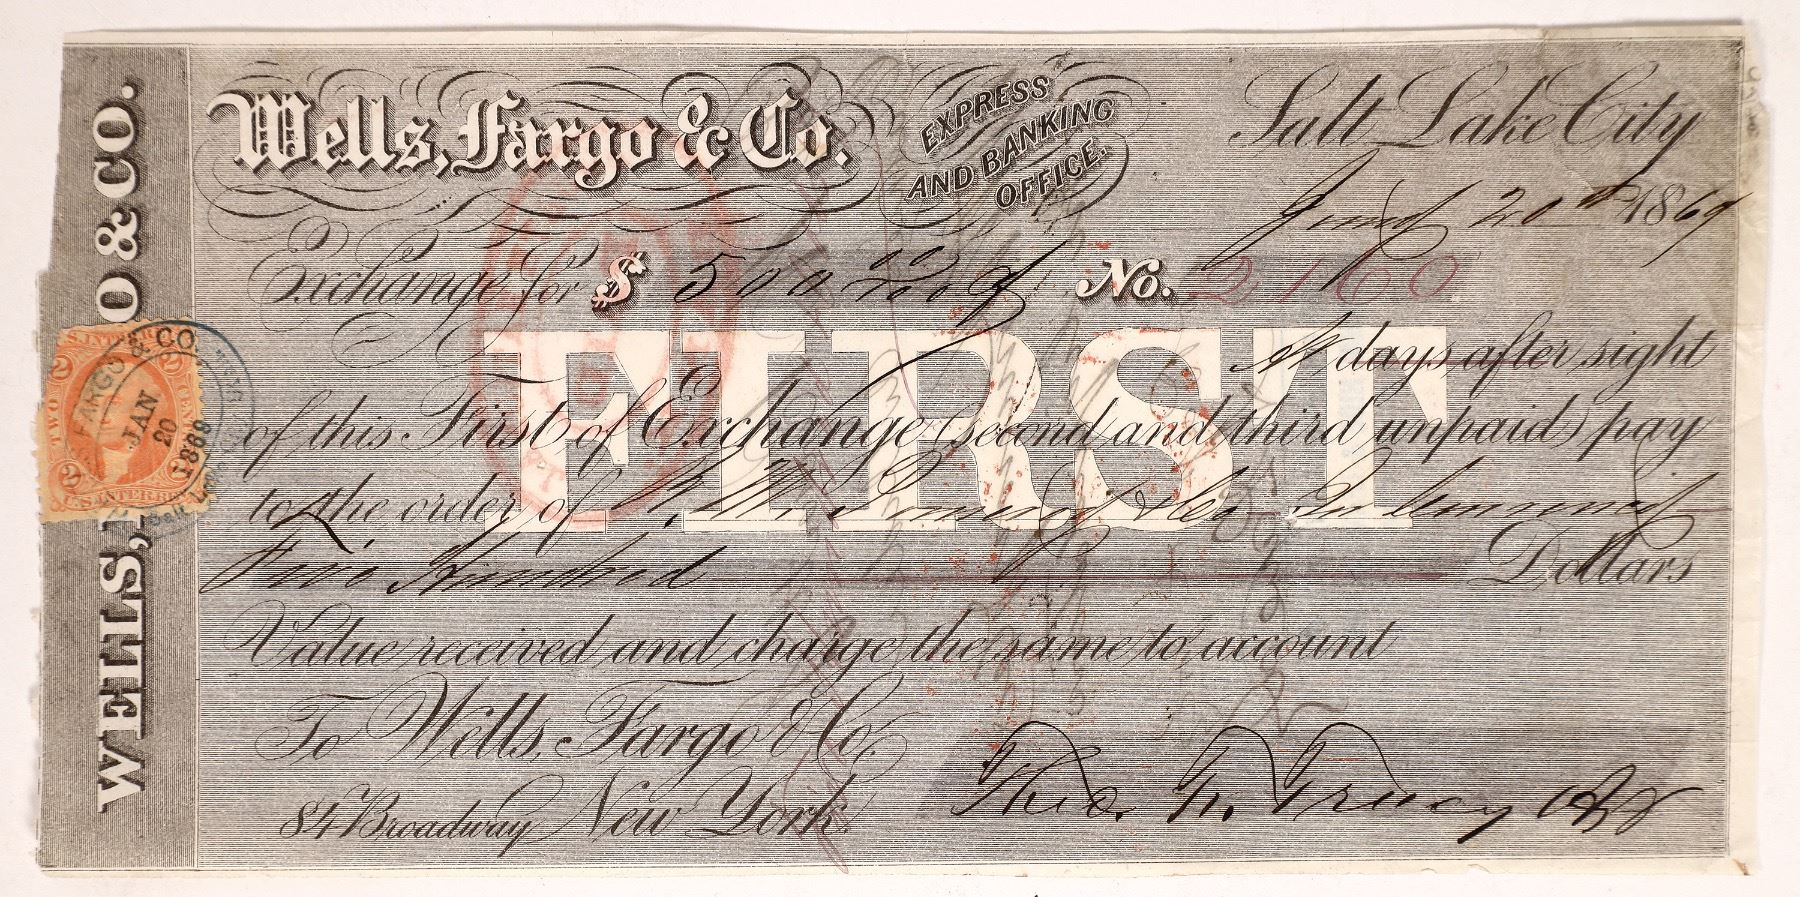 WELLS, FARGO & CO.
Wells, Fargo & Co.
EXPRESS
AND BANKING
OFFICE.
Salt Lake City
20th 1869
Exchange for $ 500 00/100 No. 2160
FIRST
At days after sight
of this First of Exchange (second and third unpaid) pay
to the order of
Five Hundred Dollars
Value received and charge the same to account
To Wells, Fargo & Co.
84 Broadway New York.
Theo. F. Tracy Agt
U.S. INTER. REV.
TWO CENTS
2
2
2
U.S. INTER. REV.
FARGO & CO.
JAN
20
1869
Salt